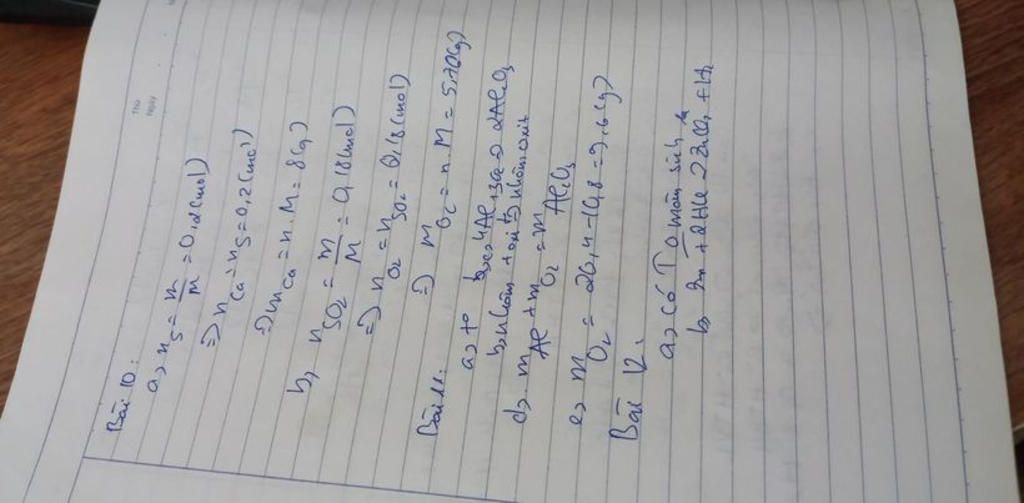 Thứ
Ngày
Bài 10:
a, n S = m/M = 0,2 (mol)
=> n Ca = n S = 0,2 (mol)
=> m Ca = n . M = 8 (g)
b, n SO2 = m/M = 0,18 (mol)
=> n O2 = n SO2 = 0,18 (mol)
=> m O2 = n . M = 5,76 (g)
Bài 11.
a, to b,c, 4Al + 3O2 -> 2Al2O3
b, nhôm + oxi -> nhôm oxit
d, m Al + m O2 = m Al2O3
e, m O2 = 20,4 - 10,8 = 9,6 (g)
Bài 12.
a, Có
b, Zn + 2HCl ZnCl2 + H2